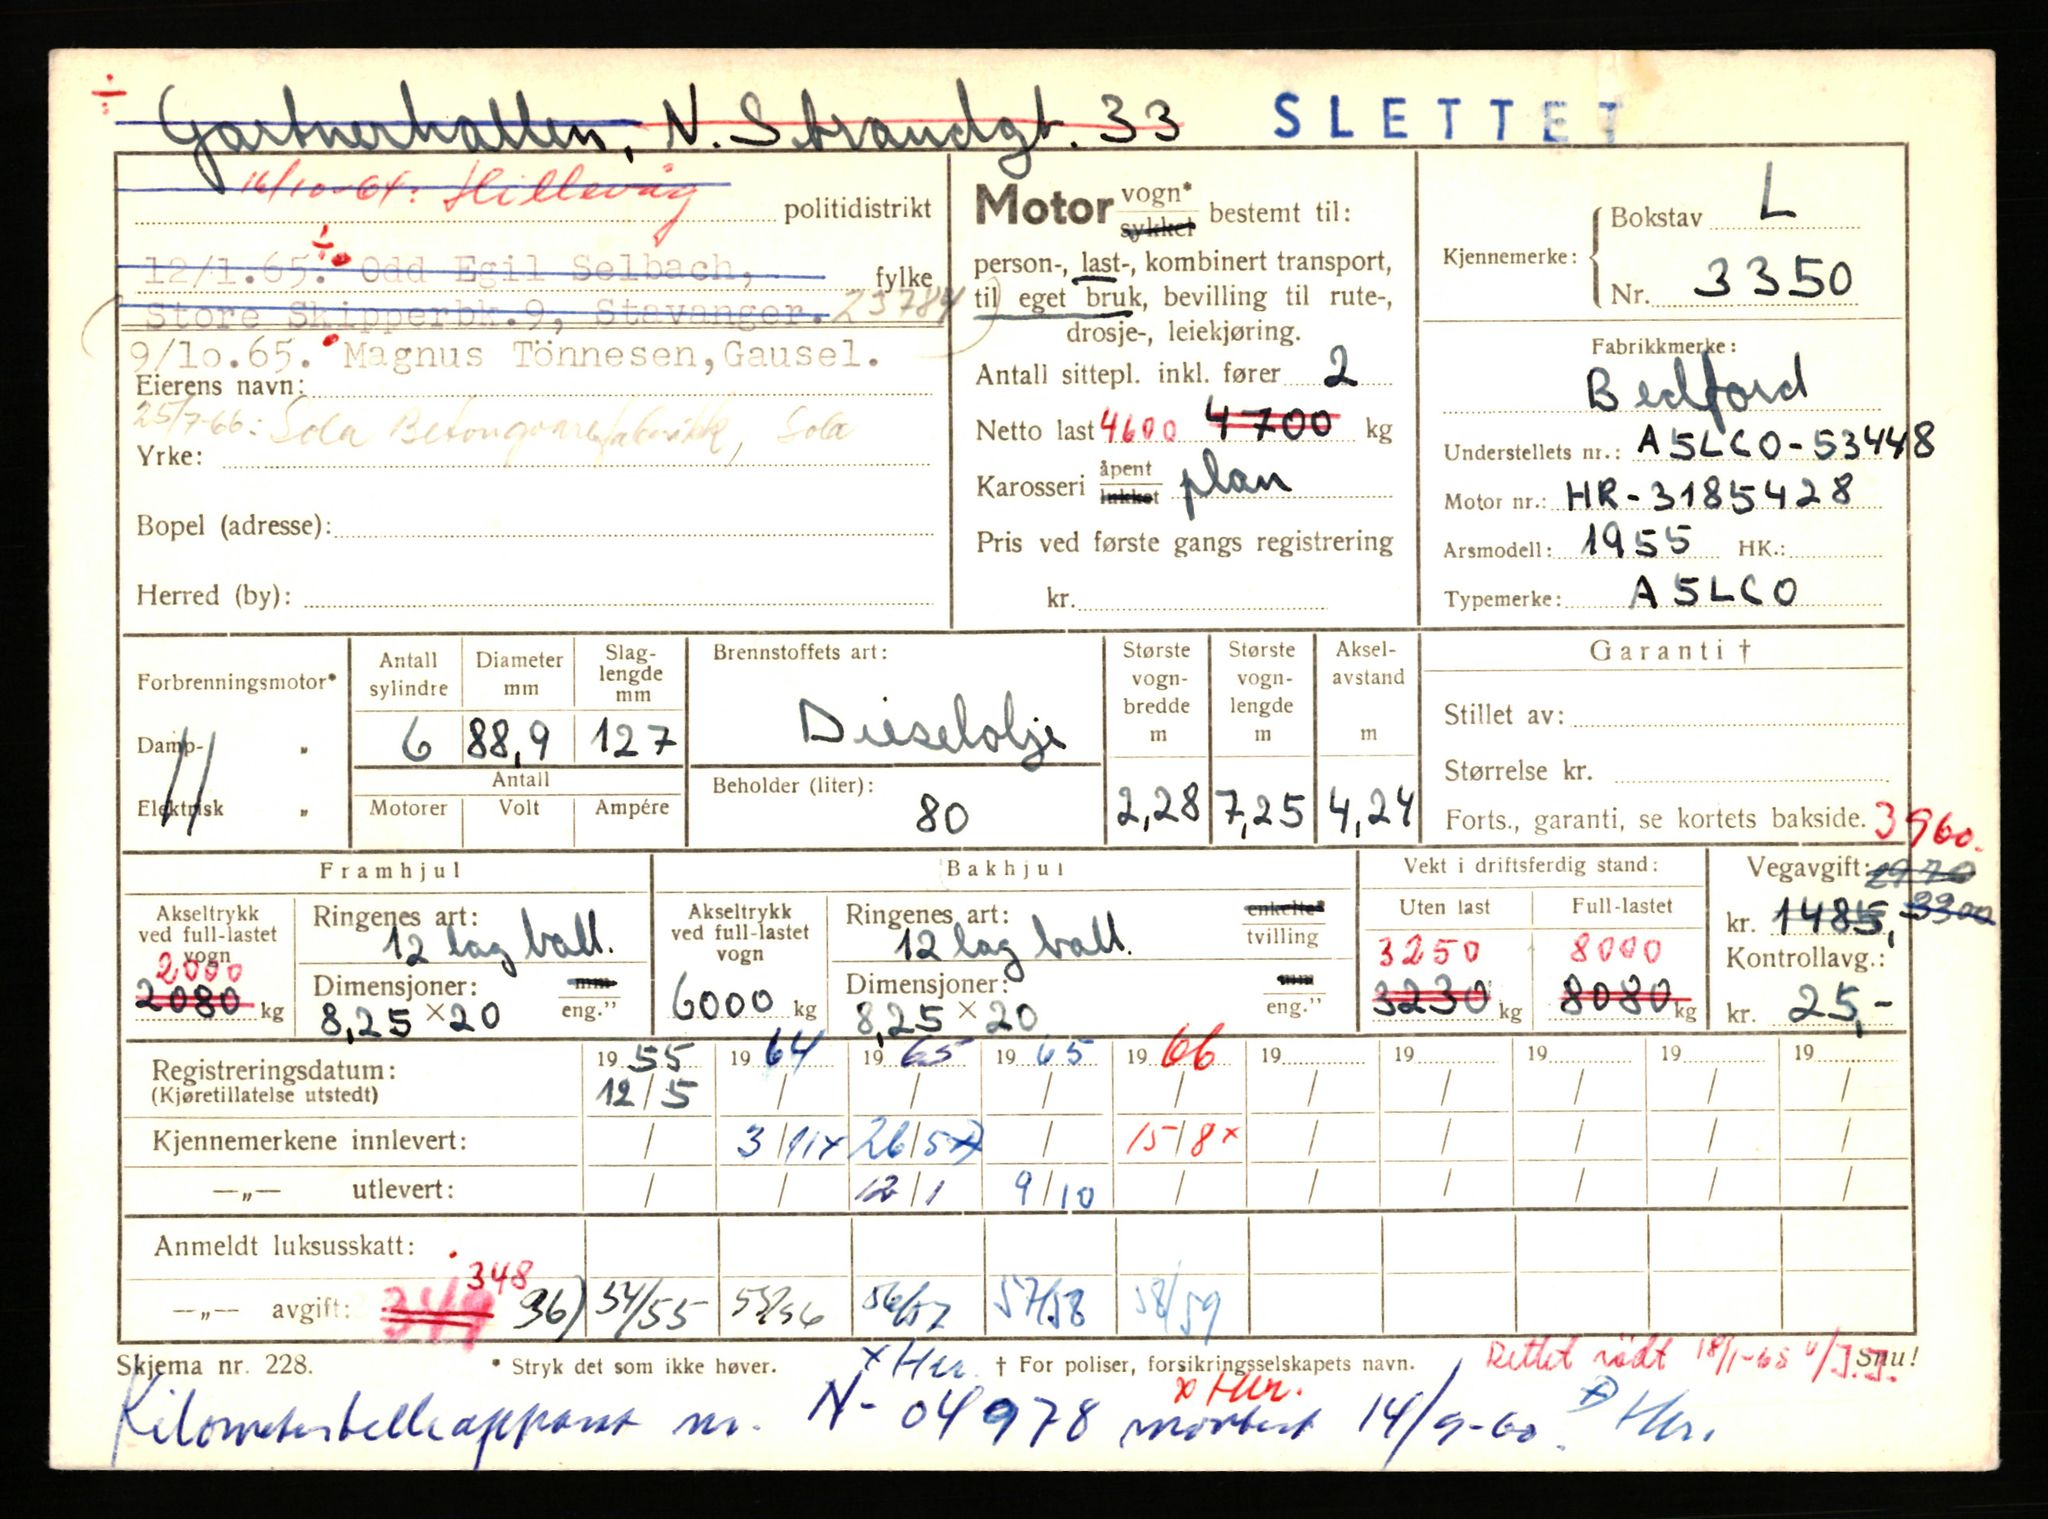 ÷ Gartnerhallen, N. Strandgt. 33 SLETTET
16/10-64: Hillevåg
politidistrikt
12/1.65. ÷ Odd Egil Selbach, fylke
Store Skipperbk.9, Stavanger. 23784
9/10.65. Magnus Tönnesen, Gausel.
Eierens navn:
25/7-66: Sola Betongvarefabrikk, Sola
Yrke:
Bopel (adresse):
Herred (by):
Motor vogn* sykkel bestemt til:
person-, last-, kombinert transport,
til eget bruk, bevilling til rute-,
drosje-, leiekjøring.
Antall sittepl. inkl. fører 2
Netto last 4600 4700 kg
Karosseri åpent lukket plan
Pris ved første gangs registrering
kr.
Kjennemerke: Bokstav L
Nr. 3350
Fabrikkmerke:
Bedford
Understellets nr.: A5LCO-53448
Motor nr.: HR-3185428
Arsmodell: 1955 HK.:
Typemerke: A5LCO
Forbrenningsmotor*
Damp- „
Elektrisk „
Antall sylindre Diameter mm Slaglengde mm
6 88,9 127
Antall
Motorer Volt Ampére
Brennstoffets art:
Dieselolje
Beholder (liter):
80
Største vogn-bredde m
2,28
Største vogn-lengde m
7,25
Aksel-avstand m
4,24
Garanti †
Stillet av:
Størrelse kr.
Forts., garanti, se kortets bakside.
Framhjul
Akseltrykk ved full-lastet vogn
2000
2080 kg
Ringenes art:
12 lag ball.
Dimensjoner: mm
8,25 × 20 eng.”
Bakhjul
Akseltrykk ved full-lastet vogn
6000 kg
Ringenes art: enkelte*
12 lag ball. tvilling
Dimensjoner: mm
8,25 × 20 eng.”
Vekt i driftsferdig stand:
Uten last Full-lastet
3250 8000
3230 kg 8080 kg
3960.
Vegavgift: 2970
kr. 1485, 3300
Kontrollavg.:
kr. 25,-
Registreringsdatum: 19 55 19 64 19 65 19 65 19 66 19 19 19 19 19
(Kjøretillatelse utstedt) 12/5 / / / / / / / / /
Kjennemerkene innlevert: / 3/11x 26/5 / 15/8x / / / / /
—„— utlevert: / / 12/1 9/10 / / / / / /
Anmeldt luksusskatt:
—„— avgift: 348 36) 54/55 55/56 56/57 57/58 58/59
Skjema nr. 228. * Stryk det som ikke høver. x Her. † For poliser, forsikringsselskapets navn. Rettet rødt 18/1-65 Snu!
x Her.
Kilometertelleapparat nr. N-04978 montert 14/9-60. Her.